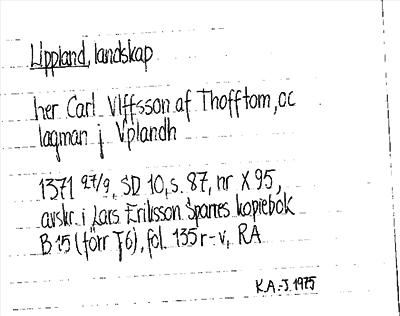 Lippland, landskap
her Carl Vlffsson af Thofftom, oc
lagman j Vplandh
1371 27/9, SD 10, s. 87, nr X 95,
avskr. i Lars Eriksson Sparres kopiebok
B 15 (förr J6), fol. 135 r-v, RA
K.A.-J. 1975